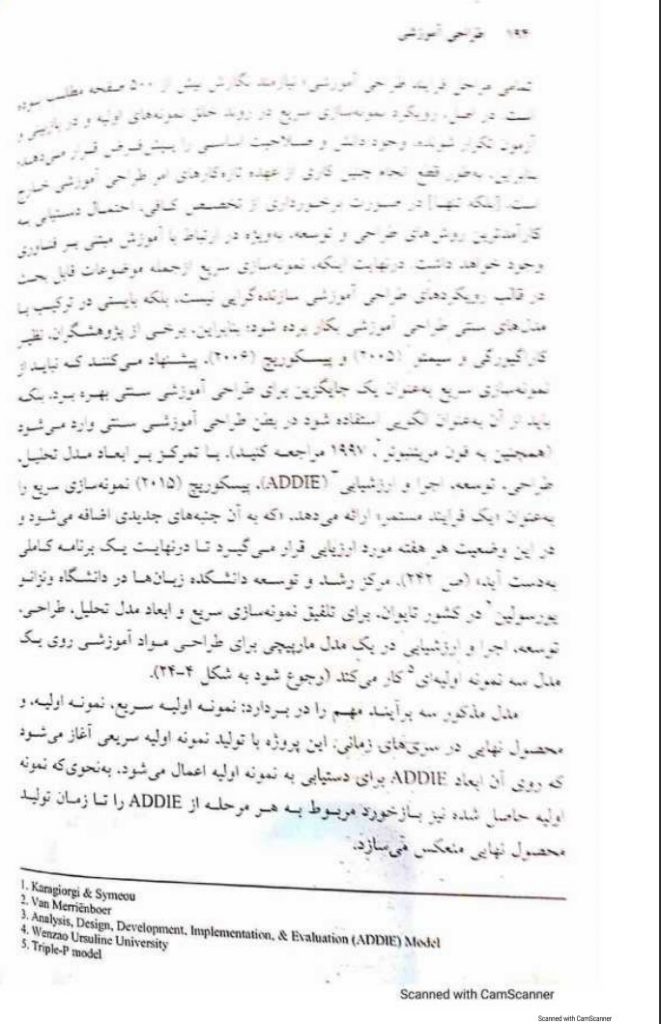 ۱۹۴ طراحی آموزشی
تمامی مراحل فرایند طراحی آموزشی، نیازمند نگارش بیش از ۵۰۰ صفحه مطالب بوده
است. در اصل، رویکرد نمونه‌سازی سریع در روند خلق نمونه‌های اولیه و در بازبینی و
آزمون تکرار شونده، وجود دانش و صلاحیت اساسی را پیش‌فرض قرار می‌دهد.
بنابراین، به‌طور قطع انجام چنین کاری از عهده تازه‌کارهای امر طراحی آموزشی خارج
است. [بلکه تنها] در صورت برخورداری از تخصص کافی، احتمال دستیابی به
کارآمدترین روش‌های طراحی و توسعه، به‌ویژه در ارتباط با آموزش مبتنی بر فناوری
وجود خواهد داشت. درنهایت اینکه، نمونه‌سازی سریع ازجمله موضوعات قابل بحث
در قالب رویکردهای طراحی آموزشی سازنده‌گرایی نیست، بلکه بایستی در ترکیب با
مدل‌های سنتی طراحی آموزشی بکار برده شود؛ بنابراین، برخی از پژوهشگران، نظیر
کاراگیورگی و سیمئو ۱ (۲۰۰۵) و پیسکوریچ (۲۰۰۶)، پیشنهاد می‌کنند که نباید از
نمونه‌سازی سریع به‌عنوان یک جایگزین برای طراحی آموزشی سنتی بهره برد، بلکه
باید از آن به‌عنوان الگویی استفاده شود در بطن طراحی آموزشی سنتی وارد می‌شود
(همچنین به ون مرینبوئر ۲، ۱۹۹۷ مراجعه کنید). با تمرکز بر ابعاد مدل تحلیل،
طراحی، توسعه، اجرا و ارزشیابی ۳ (ADDIE)، پیسکوریچ (۲۰۱۵) نمونه‌سازی سریع را
به‌عنوان «یک فرایند مستمر» ارائه می‌دهد، «که به آن جنبه‌های جدیدی اضافه می‌شود و
در این وضعیت هر هفته مورد ارزیابی قرار می‌گیرد تا درنهایت یک برنامه کاملی
به‌دست آید» (ص ۲۴۲). مرکز رشد و توسعه دانشکده زبان‌ها در دانشگاه ونزائو
یورسولین ۴ در کشور تایوان، برای تلفیق نمونه‌سازی سریع و ابعاد مدل تحلیل، طراحی،
توسعه، اجرا و ارزشیابی در یک مدل مارپیچی برای طراحی مواد آموزشی روی یک
مدل سه نمونه اولیه‌ای ۵ کار می‌کند (رجوع شود به شکل ۴-۲۴).
مدل مذکور سه برآیند مهم را در بردارد: نمونه اولیه سریع، نمونه اولیه، و
محصول نهایی در سری‌های زمانی. این پروژه با تولید نمونه اولیه سریعی آغاز می‌شود
که روی آن ابعاد ADDIE برای دستیابی به نمونه اولیه اعمال می‌شود، به‌نحوی‌که نمونه
اولیه حاصل شده نیز بازخورد مربوط به هر مرحله از ADDIE را تا زمان تولید
محصول نهایی منعکس می‌سازد.
1. Karagiorgi & Symeou
2. Van Merriënboer
3. Analysis, Design, Development, Implementation, & Evaluation (ADDIE) Model
4. Wenzao Ursuline University
5. Triple-P model
Scanned with CamScanner
Scanned with CamScanner